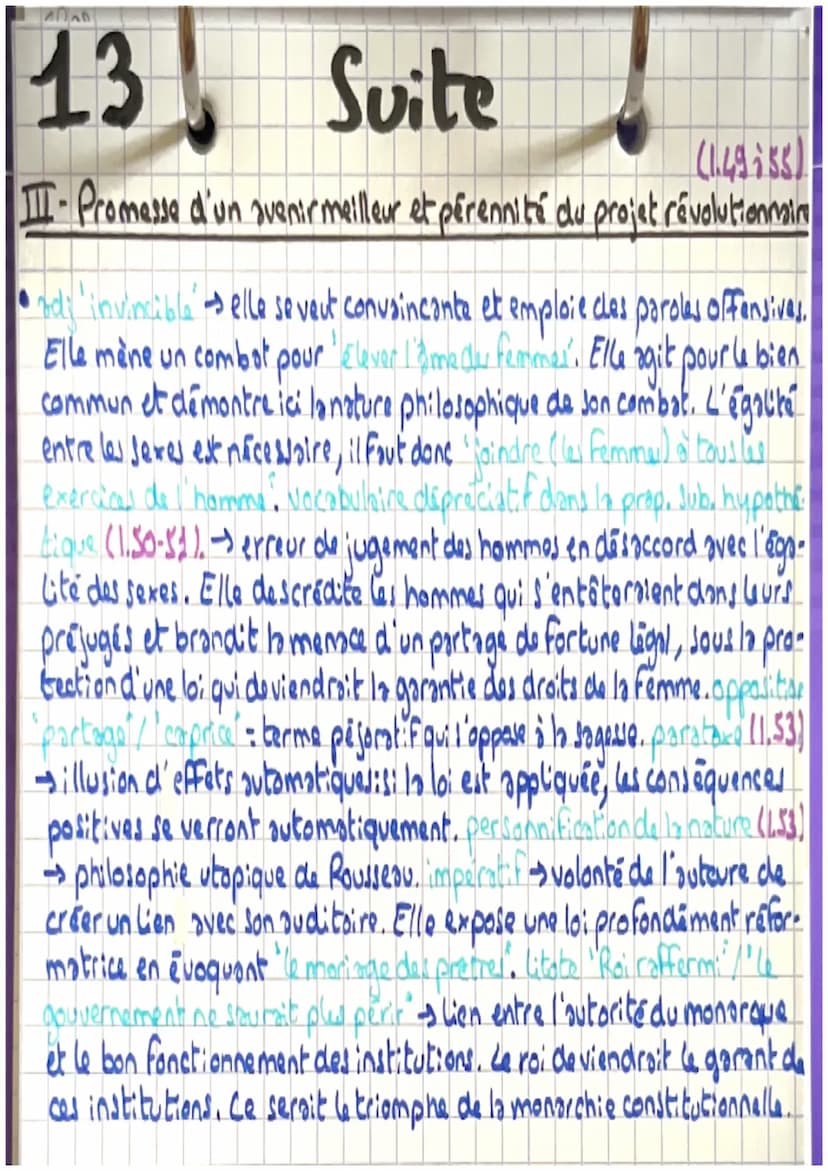 13 Suite
(l.49 à 55)
III - Promesse d'un avenir meilleur et pérennité du projet révolutionnaire
• adj 'invincible' → elle se veut convaincante et emploie des paroles offensives.
Elle mène un combat pour 'élever l'âme des femmes'. Elle agit pour le bien
commun et démontre ici la nature philosophique de son combat. L'égalité
entre les sexes est nécessaire, il faut donc 'joindre (les femmes) à tous les
exercices de l'homme'. vocabulaire dépréciatif dans la prop. sub. hypothé-
tique (l.50-51). → erreur de jugement des hommes en désaccord avec l'éga-
lité des sexes. Elle descrédite les hommes qui s'entêteraient dans leurs
préjugés et brandit la menace d'un partage de fortune légal, sous la pro-
tection d'une loi qui deviendrait la garantie des droits de la femme. opposition
'partage' / 'caprice' = terme péjoratif qui l'oppose à la sagesse. parataxe (l.53)
→ illusion d'effets automatiques : si la loi est appliquée, les conséquences
positives se verront automatiquement. personnification de la nature (l.53)
→ philosophie utopique de Rousseau. impératif → volonté de l'auteure de
créer un lien avec son auditoire. Elle expose une loi profondément réfor-
matrice en évoquant 'le mariage des prêtres'. litote 'Roi raffermi' / 'le
gouvernement ne saurait plus périr' → lien entre l'autorité du monarque
et le bon fonctionnement des institutions. Le roi deviendrait le garant de
ces institutions. Ce serait le triomphe de la monarchie constitutionnelle.